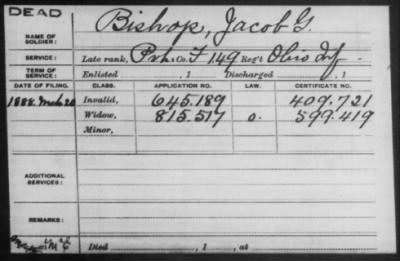 DEAD
NAME OF SOLDIER: Bishop, Jacob G.
SERVICE: Late rank, Prt. Co. F 149 Reg't Ohio Inf.
TERM OF SERVICE: Enlisted , 1 Discharged , 1
DATE OF FILING. CLASS. APPLICATION NO. LAW. CERTIFICATE NO.
1888. Mch 20 Invalid, 645.189 409.721
Widow, 815.517 O. 599.419
Minor,
ADDITIONAL SERVICES:
REMARKS:
Died , 1 , at